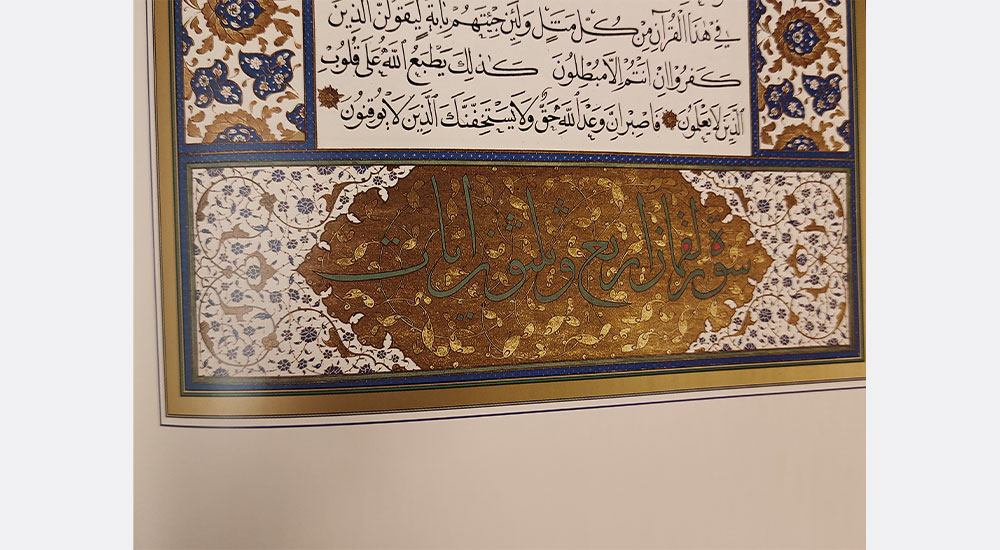 في هذا القرآن من كل مثل ولئن جئتهم بآية ليقولن الذين
كفروا ان انتم الا مبطلون كذلك يطبع الله على قلوب
الذين لا يعلمون فاصبر ان وعد الله حق ولا يستخفنك الذين لا يوقنون
سورة لقمان اربع وثلثون ايات